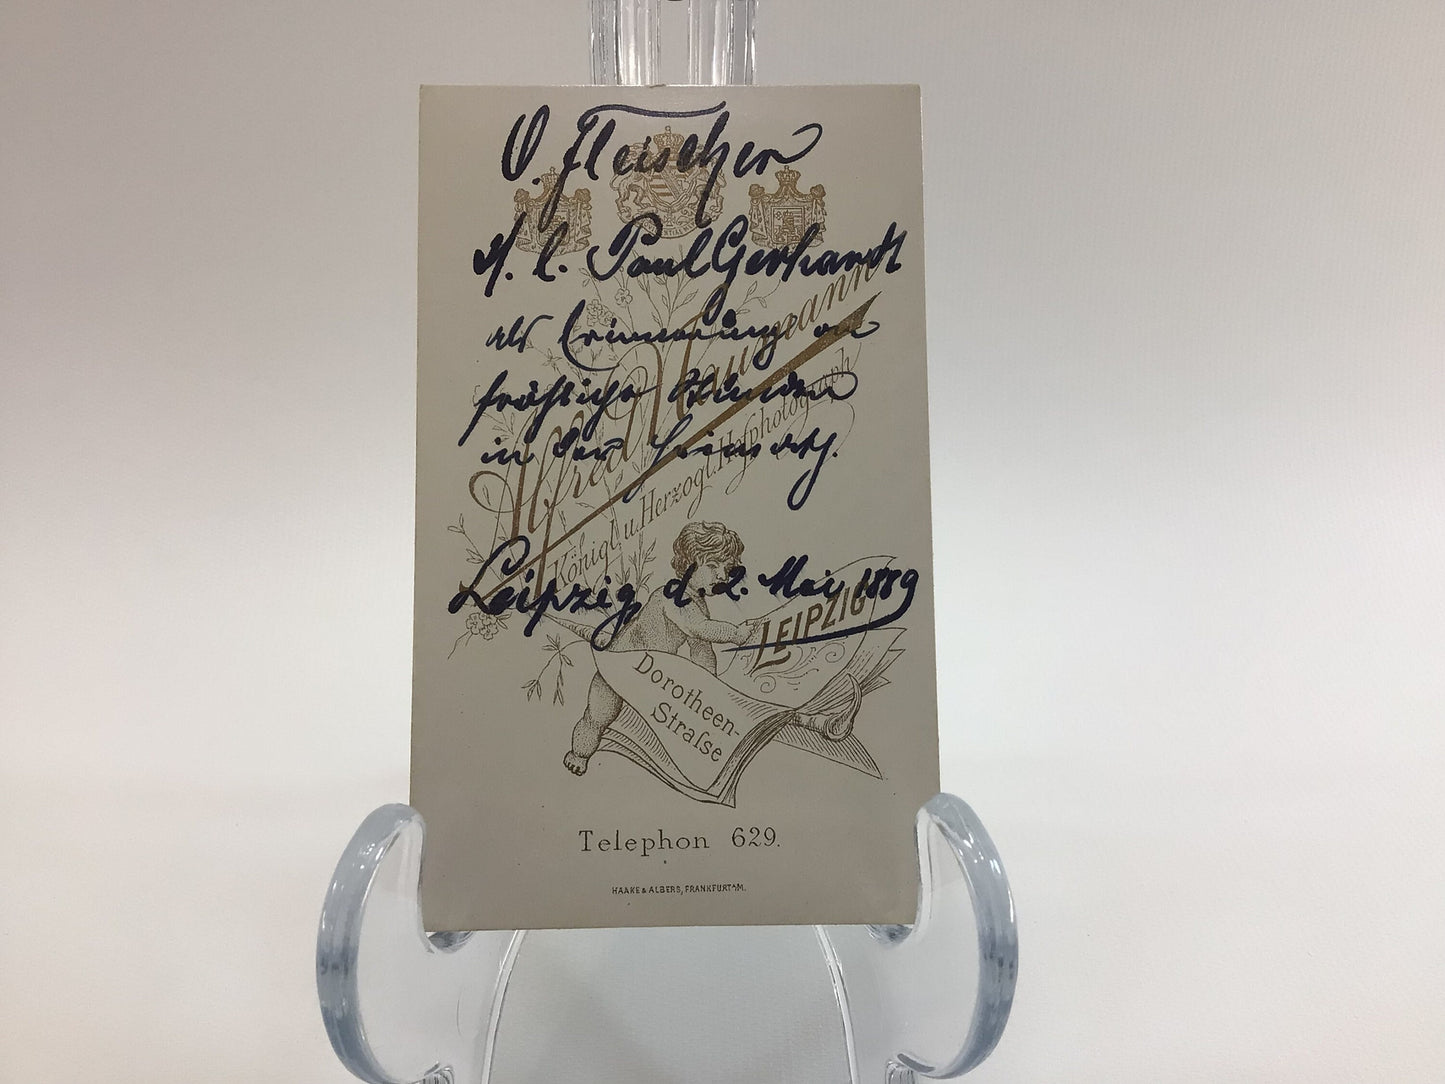 O. Fleischer
s. l. Paul Gerhardt
als Erinnerung an
fröhliche Stunden
in der
Leipzig, d. 2. Mai 1889
Alfred Naumann
Königl. u. Herzogl. Hofphotograph
LEIPZIG
Dorotheen-
Straſse
Telephon 629.
HAAKE & ALBERS, FRANKFURT A/M.